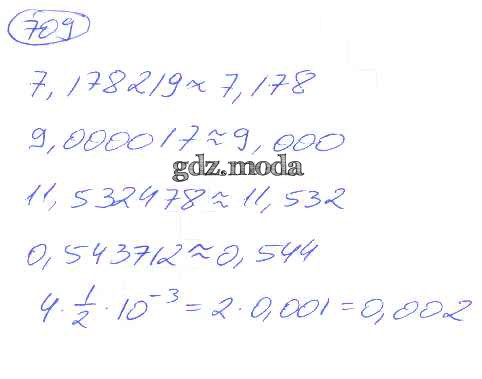 709
7,178219 ≈ 7,178
9,0000017 ≈ 9,000
gdz.moda
11,532478 ≈ 11,532
0,543712 ≈ 0,544
4 · 1/2 · 10⁻³ = 2 · 0,001 = 0,002